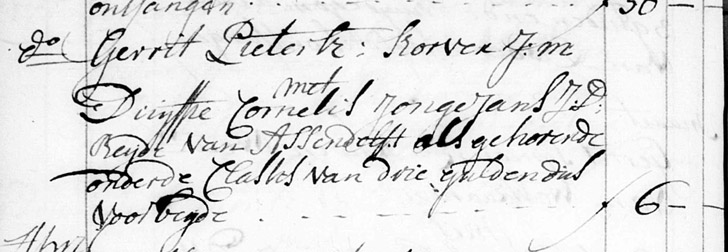 ontfangen - - - - 30 -
do Gerrit Pietersz: Korver J:m
met
Duijfie Cornelis Jonge Jans J:D:
Beyde van Assendelft als gehorende
onder de Classis van drie gulden dus
voor beyde - - - - - - 6 -